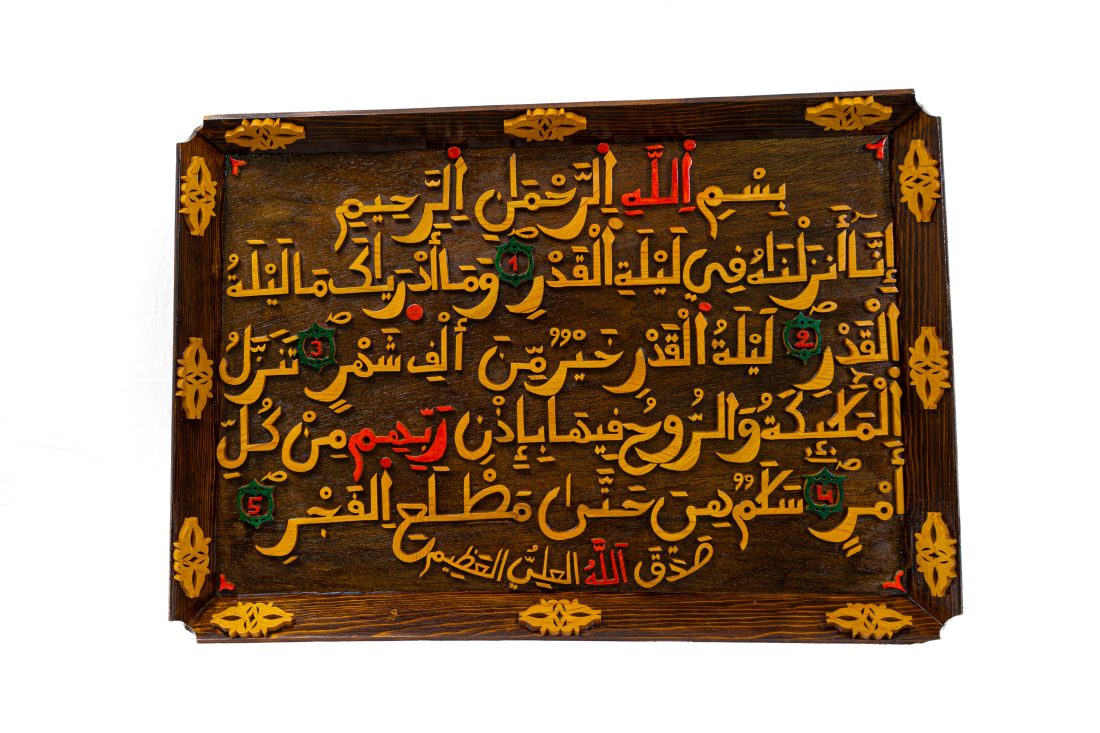 بِسْمِ اِللَّهِ اِلرَّحْمَنِ اِلرَّحِيمِ
إِنَّا أَنزَلْنَاهُ فِي لَيْلَةِ اِلْقَدْرِ 1 وَمَا أَدْرَياكَ مَا لَيْلَةُ
اُلْقَدْرِ 2 لَيْلَةُ اُلْقَدْرِ خَيْرٌ مِّنَ أَلْفِ شَهْرٍ 3 تَنَزَّلُ
اُلْمَلَئِكَةُ وَالرُّوحُ فِيهَا بِإِذْنِ رَبِّهِم مِنْ كُلِّ
أَمْرٍ 4 سَلَمٌ هِيَ حَتَّىا مَطْلَعِ اِلْفَجْرِ 5
صَدَقَ اَللَّهُ العَلِيُّ العَظِيم